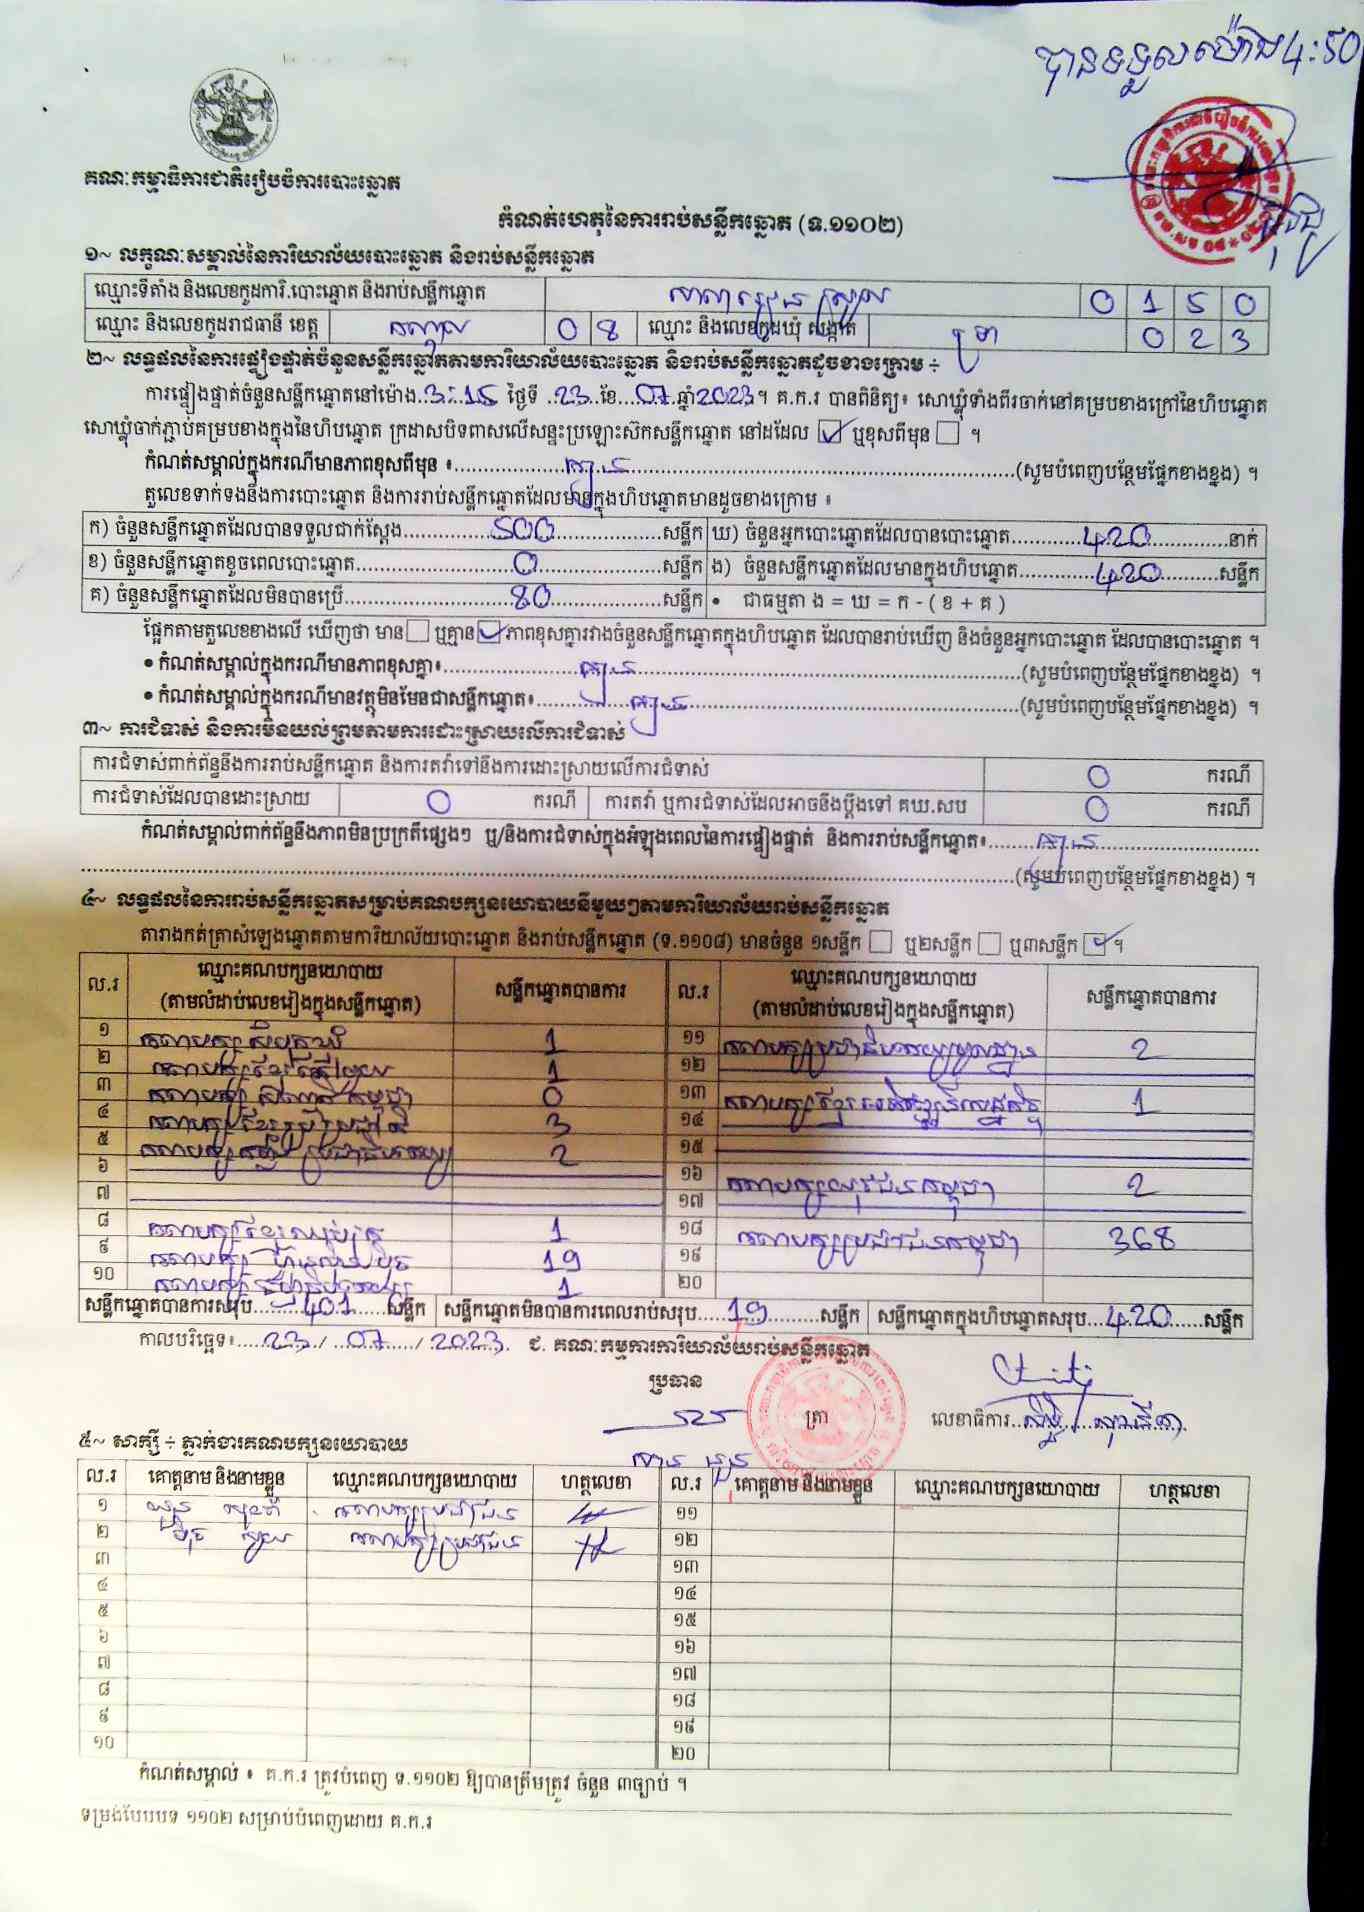 បានទទួលម៉ោង 4:50
គណៈកម្មាធិការជាតិរៀបចំការបោះឆ្នោត
កំណត់ហេតុនៃការរាប់សន្លឹកឆ្នោត (ទ.១១០២)
១~ លក្ខណៈសម្គាល់នៃការិយាល័យបោះឆ្នោត និងរាប់សន្លឹកឆ្នោត
ឈ្មោះទីតាំង និងលេខកូដការិ.បោះឆ្នោត និងរាប់សន្លឹកឆ្នោត 0 1 5 0
ឈ្មោះ និងលេខកូដរាជធានី ខេត្ត កណ្តាល 0 8 ឈ្មោះ និងលេខកូដឃុំ សង្កាត់ 0 2 3
២~ លទ្ធផលនៃការផ្ទៀងផ្ទាត់ចំនួនសន្លឹកឆ្នោតតាមការិយាល័យបោះឆ្នោត និងរាប់សន្លឹកឆ្នោតដូចខាងក្រោម ÷
ការផ្ទៀងផ្ទាត់ចំនួនសន្លឹកឆ្នោតនៅម៉ោង..3:15 ថ្ងៃទី ..23..ខែ....07..ឆ្នាំ2023។ គ.ក.រ បានពិនិត្យ៖ សោឃ្លុំទាំងពីរចាក់នៅគម្របខាងក្រៅនៃហិបឆ្នោត
សោឃ្លុំចាក់ភ្ជាប់គម្របខាងក្នុងនៃហិបឆ្នោត ក្រដាសបិទពាសលើសន្ទះប្រឡោះស៊កសន្លឹកឆ្នោត នៅដដែល ☑ ឬខុសពីមុន ☐ ។
កំណត់សម្គាល់ក្នុងករណីមានភាពខុសពីមុន ៖..........គ្មាន..........(សូមបំពេញបន្ថែមផ្នែកខាងខ្នង) ។
តួលេខទាក់ទងនឹងការបោះឆ្នោត និងការរាប់សន្លឹកឆ្នោតដែលមានក្នុងហិបឆ្នោតមានដូចខាងក្រោម ៖
ក) ចំនួនសន្លឹកឆ្នោតដែលបានទទួលជាក់ស្តែង..........500..........សន្លឹក ឃ) ចំនួនអ្នកបោះឆ្នោតដែលបានបោះឆ្នោត..........420..........នាក់
ខ) ចំនួនសន្លឹកឆ្នោតខូចពេលបោះឆ្នោត..........0..........សន្លឹក ង) ចំនួនសន្លឹកឆ្នោតដែលមានក្នុងហិបឆ្នោត..........420..........សន្លឹក
គ) ចំនួនសន្លឹកឆ្នោតដែលមិនបានប្រើ..........80..........សន្លឹក • ជាធម្មតា ង = ឃ = ក - ( ខ + គ )
ផ្អែកតាមតួលេខខាងលើ ឃើញថា មាន ☐ ឬគ្មាន ☑ ភាពខុសគ្នារវាងចំនួនសន្លឹកឆ្នោតក្នុងហិបឆ្នោត ដែលបានរាប់ឃើញ និងចំនួនអ្នកបោះឆ្នោត ដែលបានបោះឆ្នោត ។
• កំណត់សម្គាល់ក្នុងករណីមានភាពខុសគ្នា៖..........គ្មាន..........(សូមបំពេញបន្ថែមផ្នែកខាងខ្នង) ។
• កំណត់សម្គាល់ក្នុងករណីមានវត្ថុមិនមែនជាសន្លឹកឆ្នោត៖..........គ្មាន..........(សូមបំពេញបន្ថែមផ្នែកខាងខ្នង) ។
៣~ ការជំទាស់ និងការមិនយល់ព្រមតាមការដោះស្រាយលើការជំទាស់
ការជំទាស់ពាក់ព័ន្ធនឹងការរាប់សន្លឹកឆ្នោត និងការតវ៉ាទៅនឹងការដោះស្រាយលើការជំទាស់ 0 ករណី
ការជំទាស់ដែលបានដោះស្រាយ 0 ករណី ការតវ៉ា ឬការជំទាស់ដែលអាចនឹងប្តឹងទៅ គឃ.សប 0 ករណី
កំណត់សម្គាល់ពាក់ព័ន្ធនឹងភាពមិនប្រក្រតីផ្សេងៗ ឬ/និងការជំទាស់ក្នុងអំឡុងពេលនៃការផ្ទៀងផ្ទាត់ និងការរាប់សន្លឹកឆ្នោត៖........គ្មាន..........
..........(សូមបំពេញបន្ថែមផ្នែកខាងខ្នង) ។
៤~ លទ្ធផលនៃការរាប់សន្លឹកឆ្នោតសម្រាប់គណបក្សនយោបាយនីមួយៗតាមការិយាល័យរាប់សន្លឹកឆ្នោត
តារាងកត់ត្រាសំឡេងឆ្នោតតាមការិយាល័យបោះឆ្នោត និងរាប់សន្លឹកឆ្នោត (ទ.១១០៨) មានចំនួន ១សន្លឹក ☐ ឬ២សន្លឹក ☐ ឬ៣សន្លឹក ☑ ។
ល.រ ឈ្មោះគណបក្សនយោបាយ (តាមលំដាប់លេខរៀងក្នុងសន្លឹកឆ្នោត) សន្លឹកឆ្នោតបានការ ល.រ ឈ្មោះគណបក្សនយោបាយ (តាមលំដាប់លេខរៀងក្នុងសន្លឹកឆ្នោត) សន្លឹកឆ្នោតបានការ
១ 1 ១១ គណបក្សប្រជាធិបតេយ្យមូលដ្ឋាន 2
២ គណបក្សខ្មែរតែមួយ 1 ១២
៣ 0 ១៣ គណបក្សខ្មែរអភិវឌ្ឍន៍សេដ្ឋកិច្ច 1
៤ 3 ១៤
៥ គណបក្សកម្លាំងប្រជាធិបតេយ្យ 2 ១៥
៦ ១៦ គណបក្សយុវជនកម្ពុជា 2
៧ ១៧
៨ គណបក្សខ្មែរឈប់ក្រ 1 ១៨ គណបក្សប្រជាជនកម្ពុជា 368
៩ គណបក្ស ហ៊្វុនស៊ិនប៉ិច 19 ១៩
១០ 1 ២០
សន្លឹកឆ្នោតបានការសរុប......401......សន្លឹក សន្លឹកឆ្នោតមិនបានការពេលរាប់សរុប......19......សន្លឹក សន្លឹកឆ្នោតក្នុងហិបឆ្នោតសរុប...420......សន្លឹក
កាលបរិច្ឆេទ៖....23./..07../..2023. ជ. គណៈកម្មការការិយាល័យរាប់សន្លឹកឆ្នោត
ប្រធាន ត្រា លេខាធិការ
៥~ សាក្សី ÷ ភ្នាក់ងារគណបក្សនយោបាយ
ល.រ គោត្តនាម និងនាមខ្លួន ឈ្មោះគណបក្សនយោបាយ ហត្ថលេខា ល.រ គោត្តនាម និងនាមខ្លួន ឈ្មោះគណបក្សនយោបាយ ហត្ថលេខា
១ គណបក្សប្រជាជន ១១
២ គណបក្សប្រជាជន ១២
៣ ១៣
៤ ១៤
៥ ១៥
៦ ១៦
៧ ១៧
៨ ១៨
៩ ១៩
១០ ២០
កំណត់សម្គាល់ ៖ គ.ក.រ ត្រូវបំពេញ ទ.១១០២ ឱ្យបានត្រឹមត្រូវ ចំនួន ៣ច្បាប់ ។
ទម្រង់បែបបទ ១១០២ សម្រាប់បំពេញដោយ គ.ក.រ